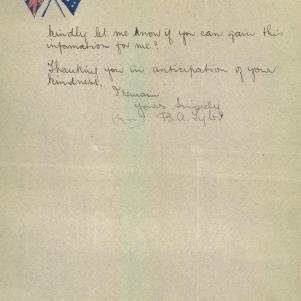 kindly let me know if you can gain this
infomation for me?
Thanking you in anticipation of your
kindness,
I remain
Yours Sincerely
B. A.